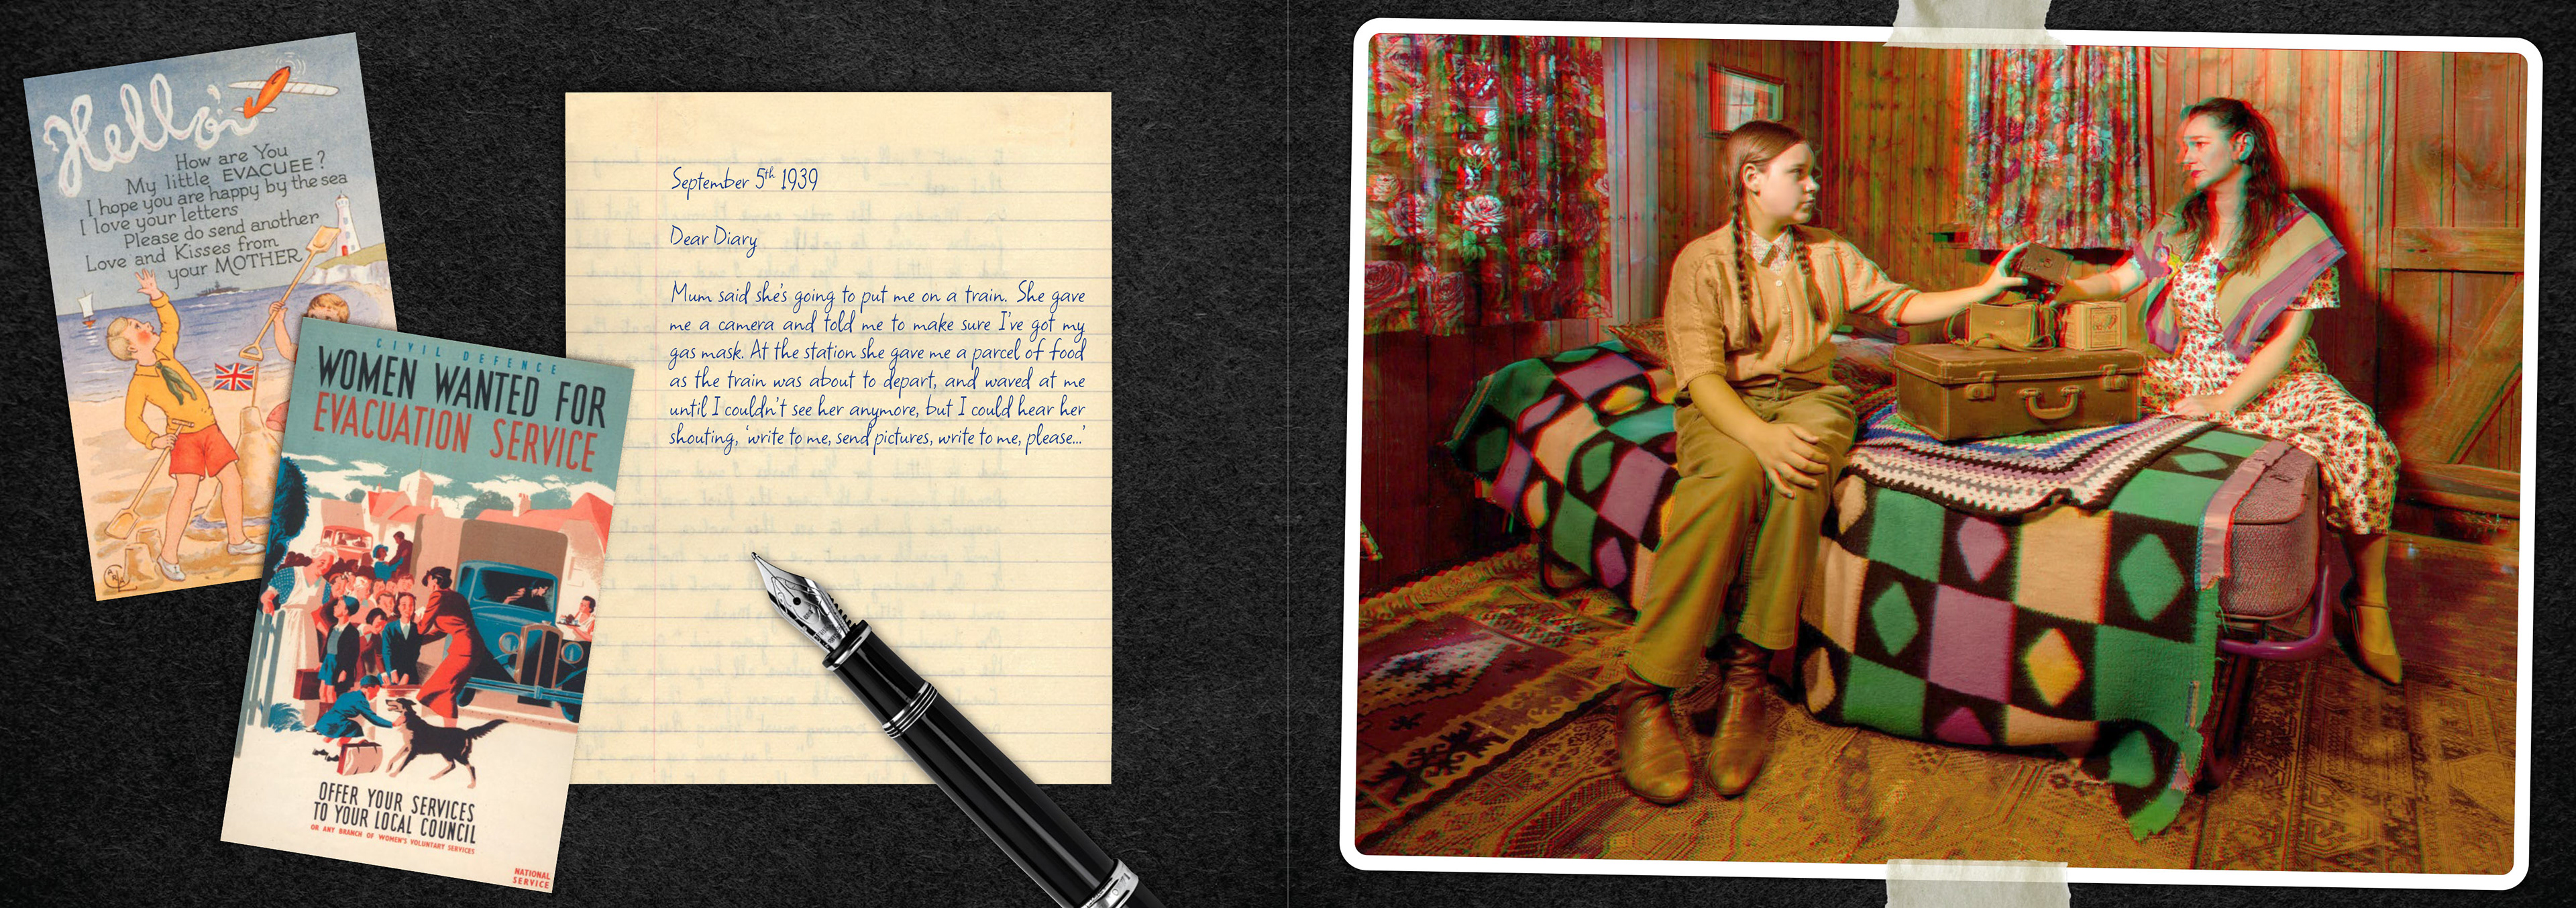 Hello!
How are You
My little EVACUEE?
I hope you are happy by the sea
I love your letters
Please do send another
Love and Kisses from
your MOTHER
CIVIL DEFENCE
WOMEN WANTED FOR
EVACUATION SERVICE
OFFER YOUR SERVICES
TO YOUR LOCAL COUNCIL
OR ANY BRANCH OF WOMEN'S VOLUNTARY SERVICES
NATIONAL
SERVICE
September 5th 1939
Dear Diary
Mum said she's going to put me on a train. She gave
me a camera and told me to make sure I've got my
gas mask. At the station she gave me a parcel of food
as the train was about to depart, and waved at me
until I couldn't see her anymore, but I could hear her
shouting, 'write to me, send pictures, write to me, please...'